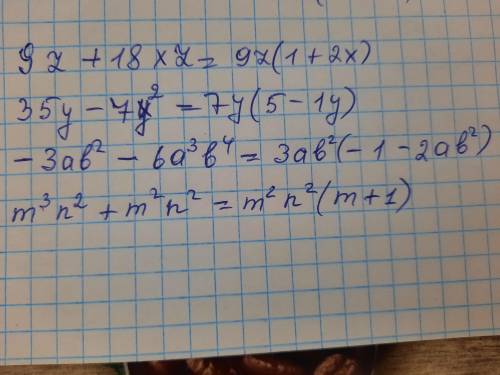 9z + 18xz = 9z(1 + 2x)
35y - 7y² = 7y(5 - 1y)
-3ab² - 6a³b⁴ = 3ab²(-1 - 2ab²)
m³n² + m²n² = m²n²(m + 1)